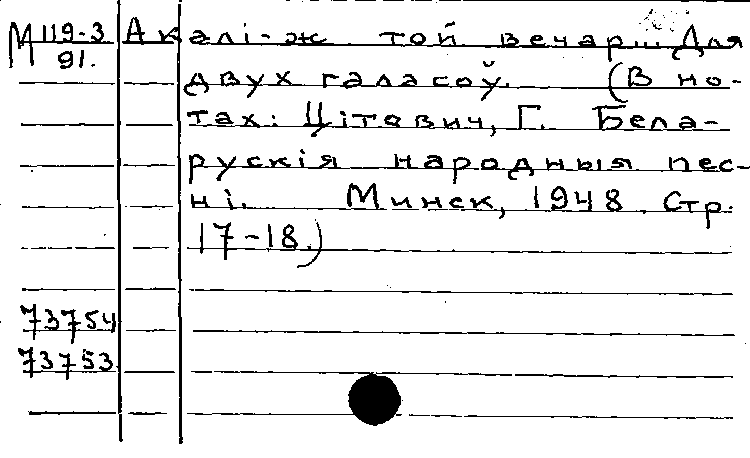 М 119-3 А калі-ж той вечар... Для
91. двух галасоў. (В но-
тах: Цітович, Г. Бела-
рускія народныя пес-
ні. Минск, 1948. Стр.
17-18.)
73754
73753